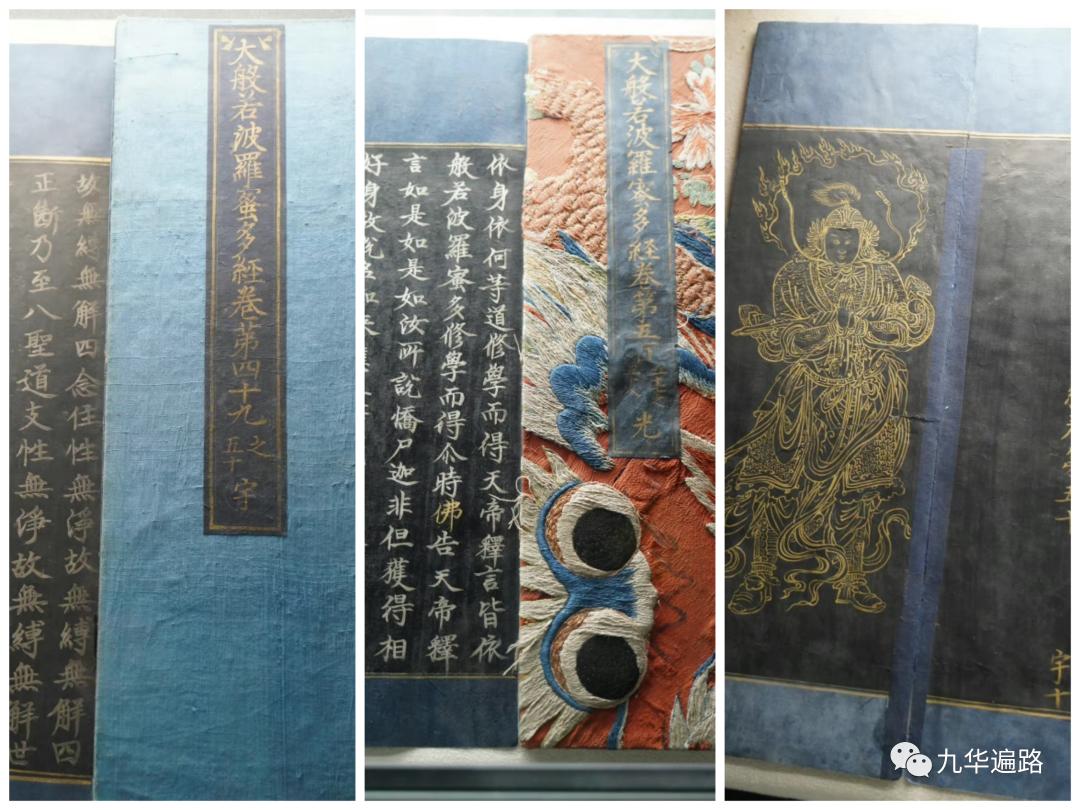 大般若波羅蜜多經卷第四十九 五十之 宇
故無縛無解四念住性無淨故無縛無解四
正斷乃至八聖道支性無淨故無縛無解世
大般若波羅蜜多經卷第五
光
依身依何等道修學而得天帝釋言皆依
般若波羅蜜多修學而得尒時佛告天帝釋
言如是如是如汝所說憍尸迦非但獲得相
好身故說名如來
宇十
九华遍路